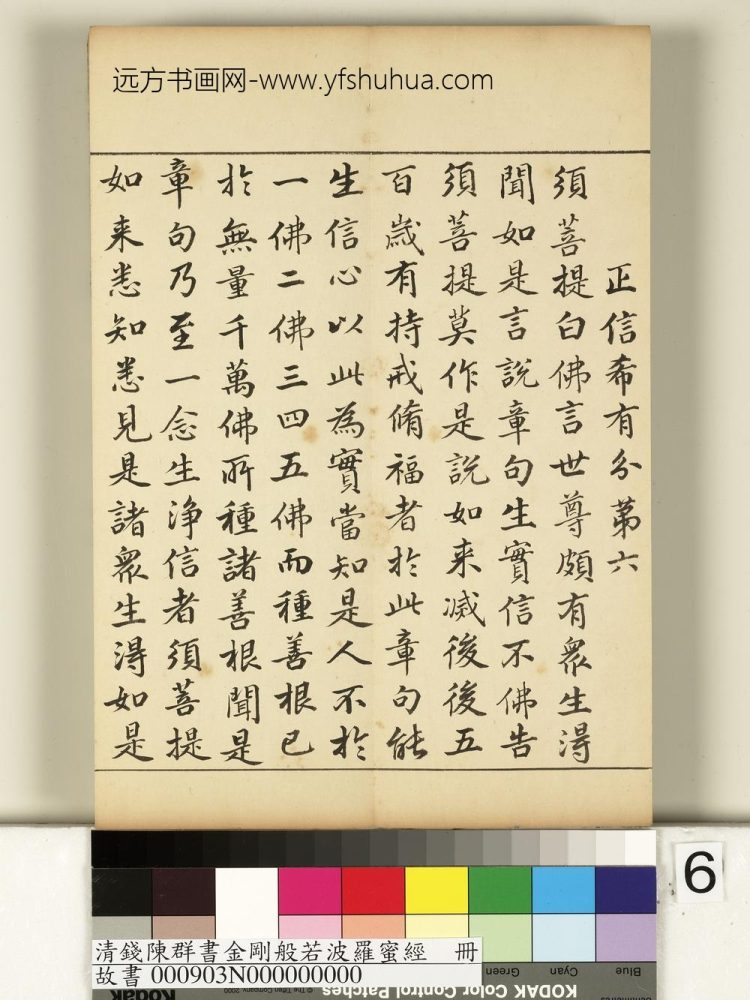 远方书画网-www.yfshuhua.com
正信希有分第六
須菩提白佛言世尊頗有衆生淂
聞如是言說章句生實信不佛告
須菩提莫作是說如来滅後後五
百歲有持戒脩福者於此章句能
生信心以此為實當知是人不於
一佛二佛三四五佛而種善根已
於無量千萬佛所種諸善根聞是
章句乃至一念生淨信者須菩提
如来悉知悉見是諸衆生淂如是
6
清錢陳群書金剛般若波羅蜜經 冊
故書 000903N000000000
Green
Cyan
Blue
Kodak
© The Tiffen Company, 2000
KODAK Color Control Patches